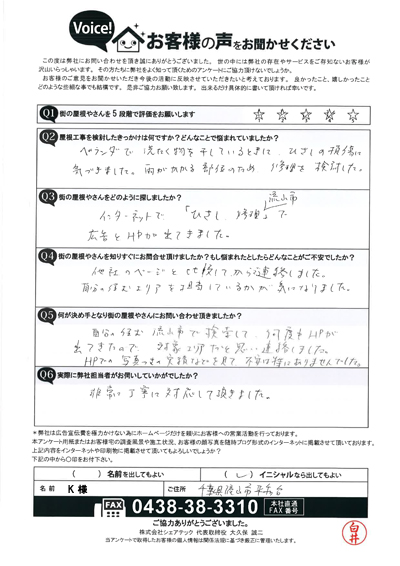 Voice!
お客様の声をお聞かせください
この度は弊社にお問い合わせを頂き誠にありがとうございました。世の中には弊社の存在やサービスをご存知ないお客様が
沢山いらっしゃいます。その方たちに弊社をよく知って頂くためのアンケートにご協力頂けないでしょうか。
お客様のご意見をお聞かせいただき今後の活動に反映させていただきたいと考えております。良かったこと、嬉しかったこと
どのような些細な事でも結構です。是非ご協力お願い致します。出来るだけ具体的に書いて頂ければ幸いです。
Q1 街の屋根やさんを5段階で評価をお願いします
Q2 屋根工事を検討したきっかけは何ですか?どんなことで悩まれていましたか?
ベランダで洗たく物を干しているときに、ひさしの損傷に
気づきました。雨がかかる部位のため修理を検討した。
Q3 街の屋根やさんをどのように探しましたか?
流山市
インターネットで「ひさし 修理」で
広告とHPが出てきました。
Q4 街の屋根やさんを知りすぐにお問合せ頂けましたか?もし悩まれたとしたらどんなことがご不安でしたか?
他社のページと比較してから連絡しました。
自分の住むエリアを担当しているかが気になりました。
Q5 何が決め手となり街の屋根やさんにお問い合わせ頂きましたか?
自分の住む流山市で検索して、何度もHPが
出てきたので、対象エリアだと思い連絡しました。
HPでの写真つきの実績などを見て、不安は特にありませんでした。
Q6 実際に弊社担当者がお伺いしていかがでしたか?
非常に丁寧に対応して頂きました。
*弊社は広告宣伝費を極力かけない為にホームページだけを頼りにお客様への営業活動を行っております。
本アンケート用紙またはお客様宅の調査風景や施工状況、お客様の顔写真を随時ブログ形式のインターネットに掲載させて頂いております。
上記内容をインターネットや印刷物に掲載させて頂いてもよろしいでしょうか?
下記の中から〇印をお付下さい。
( ) 名前を出してもよい ( ✓ ) イニシャルなら出してもよい
名前 K 様 ご住所 千葉県流山市平和台
FAX 0438-38-3310 本社直通FAX番号
ご協力ありがとうございました。
株式会社シェアテック 代表取締役 大久保 誠二
当アンケートで取得したお客様の個人情報は関係法規に基づき厳正に管理いたします。
白井